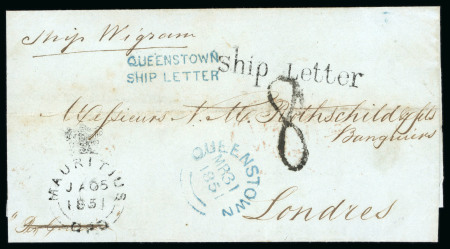 Ship Wigram
QUEENSTOWN
SHIP LETTER
Ship Letter
Messieurs N. M. Rothschild & fils
Banquiers
8
QUEENSTOWN
MR 31
1851
MAURITIUS
JA 05
1851
GPO
Londres